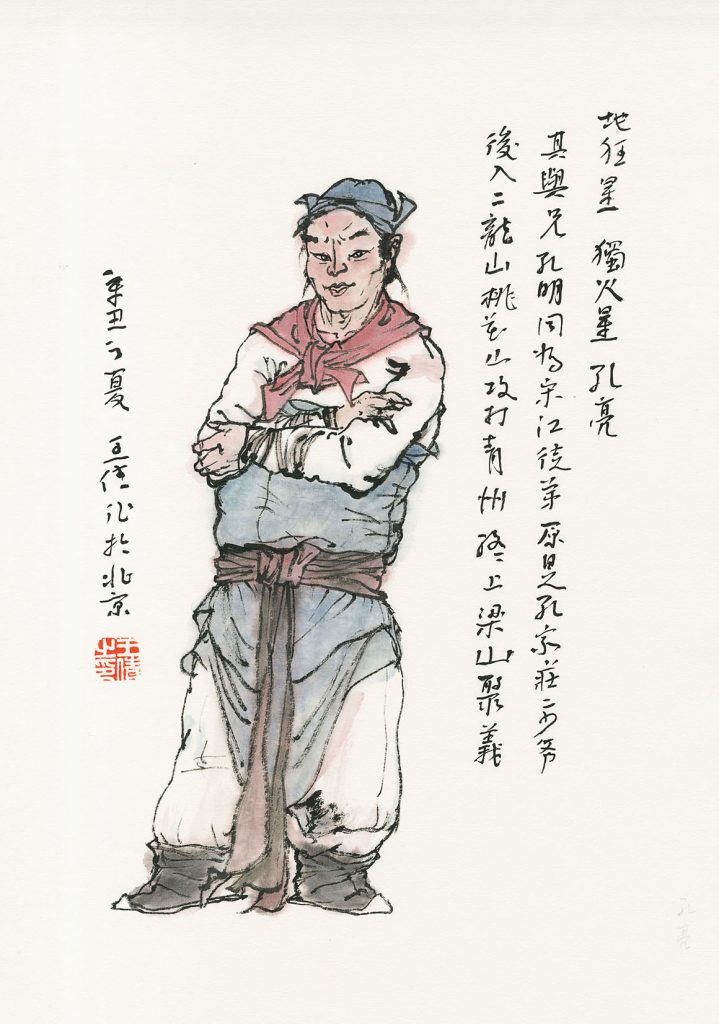 地狂星 獨火星 孔亮
其與兄孔明同为宋江徒弟原是孔家莊二少爷
後入二龍山桃花山攻打青州終上梁山聚義
辛丑之夏 王偉作於北京
王偉之印
孔亮